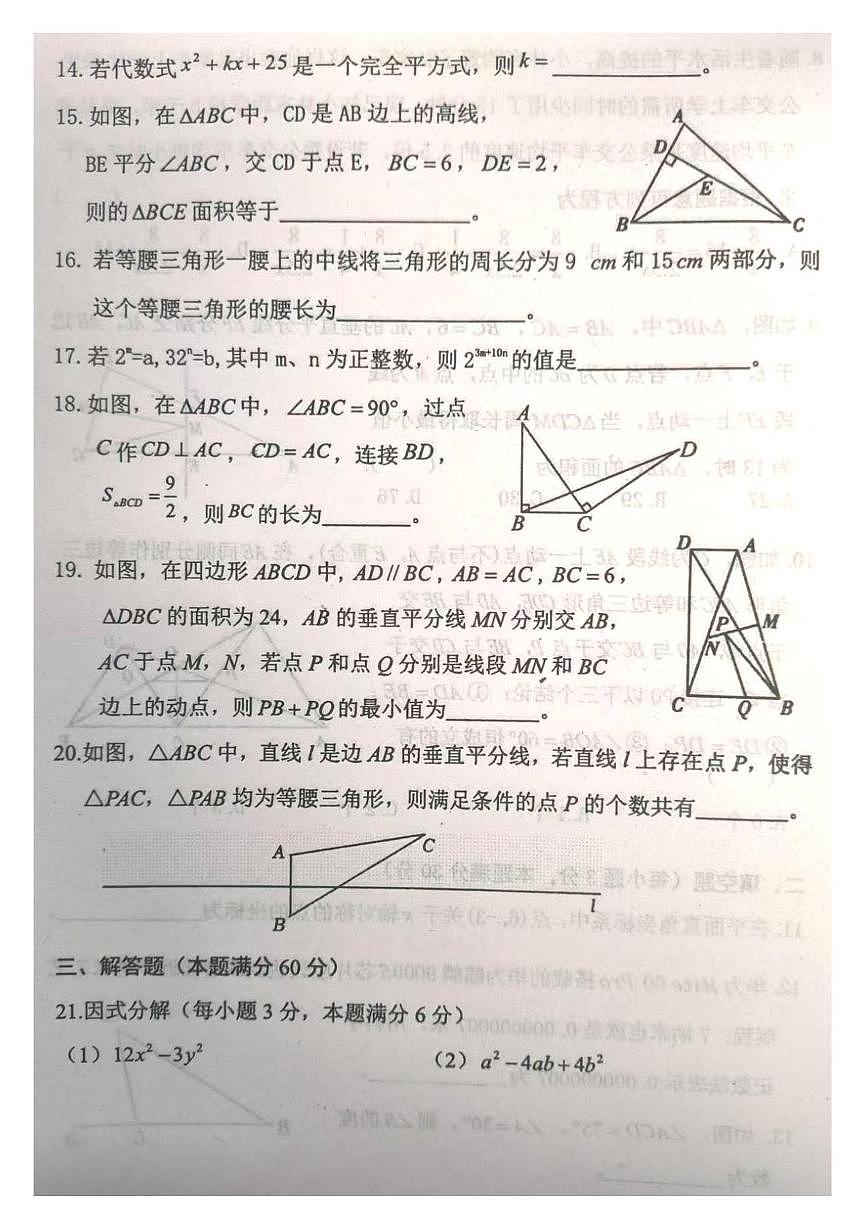 14. 若代数式 x² + kx + 25 是一个完全平方式，则 k = ________。
15. 如图，在 △ABC 中，CD 是 AB 边上的高线，
BE 平分 ∠ABC，交 CD 于点 E，BC = 6，DE = 2，
则的 △BCE 面积等于________。
A
D
E
B
C
16. 若等腰三角形一腰上的中线将三角形的周长分为 9 cm 和 15cm 两部分，则
这个等腰三角形的腰长为________。
17. 若 2ᵐ=a, 32ⁿ=b, 其中 m、n 为正整数，则 2³ᵐ⁺¹⁰ⁿ 的值是________。
18. 如图，在 △ABC 中，∠ABC = 90°，过点
C 作 CD ⊥ AC，CD = AC，连接 BD，
S△BCD = 9/2，则 BC 的长为________。
A
D
B
C
19. 如图，在四边形 ABCD 中, AD // BC , AB = AC , BC = 6，
△DBC 的面积为 24，AB 的垂直平分线 MN 分别交 AB，
AC 于点 M，N，若点 P 和点 Q 分别是线段 MN 和 BC
边上的动点，则 PB + PQ 的最小值为________。
D
A
P
M
N
C
Q
B
20.如图，△ABC 中，直线 l 是边 AB 的垂直平分线，若直线 l 上存在点 P，使得
△PAC，△PAB 均为等腰三角形，则满足条件的点 P 的个数共有________。
A
C
B
l
三、解答题（本题满分 60 分）
21.因式分解（每小题 3 分，本题满分 6 分）
（1）12x² −3y² （2）a² − 4ab + 4b²